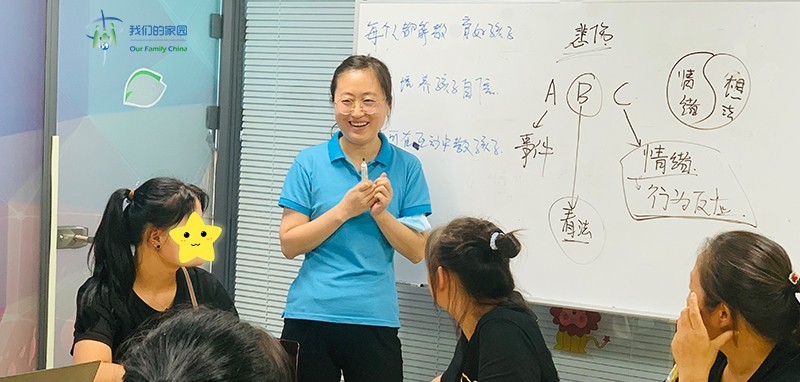 我们的家园
Our Family China
每个人都需要 育好孩子
培养孩子自信
悲伤
A B C
事件
看法
情绪
行为反应
情绪
想法